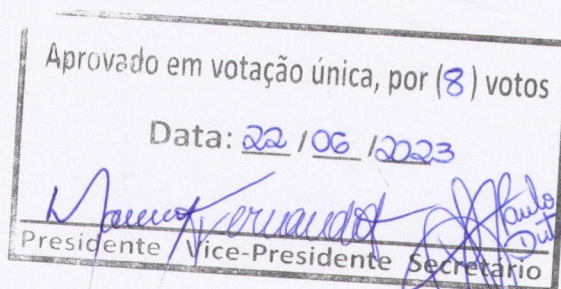 Aprovado em votação única, por (8) votos
Data: 22 / 06 / 2023
Fernanda Paulo
Presidente Vice-Presidente Secretário